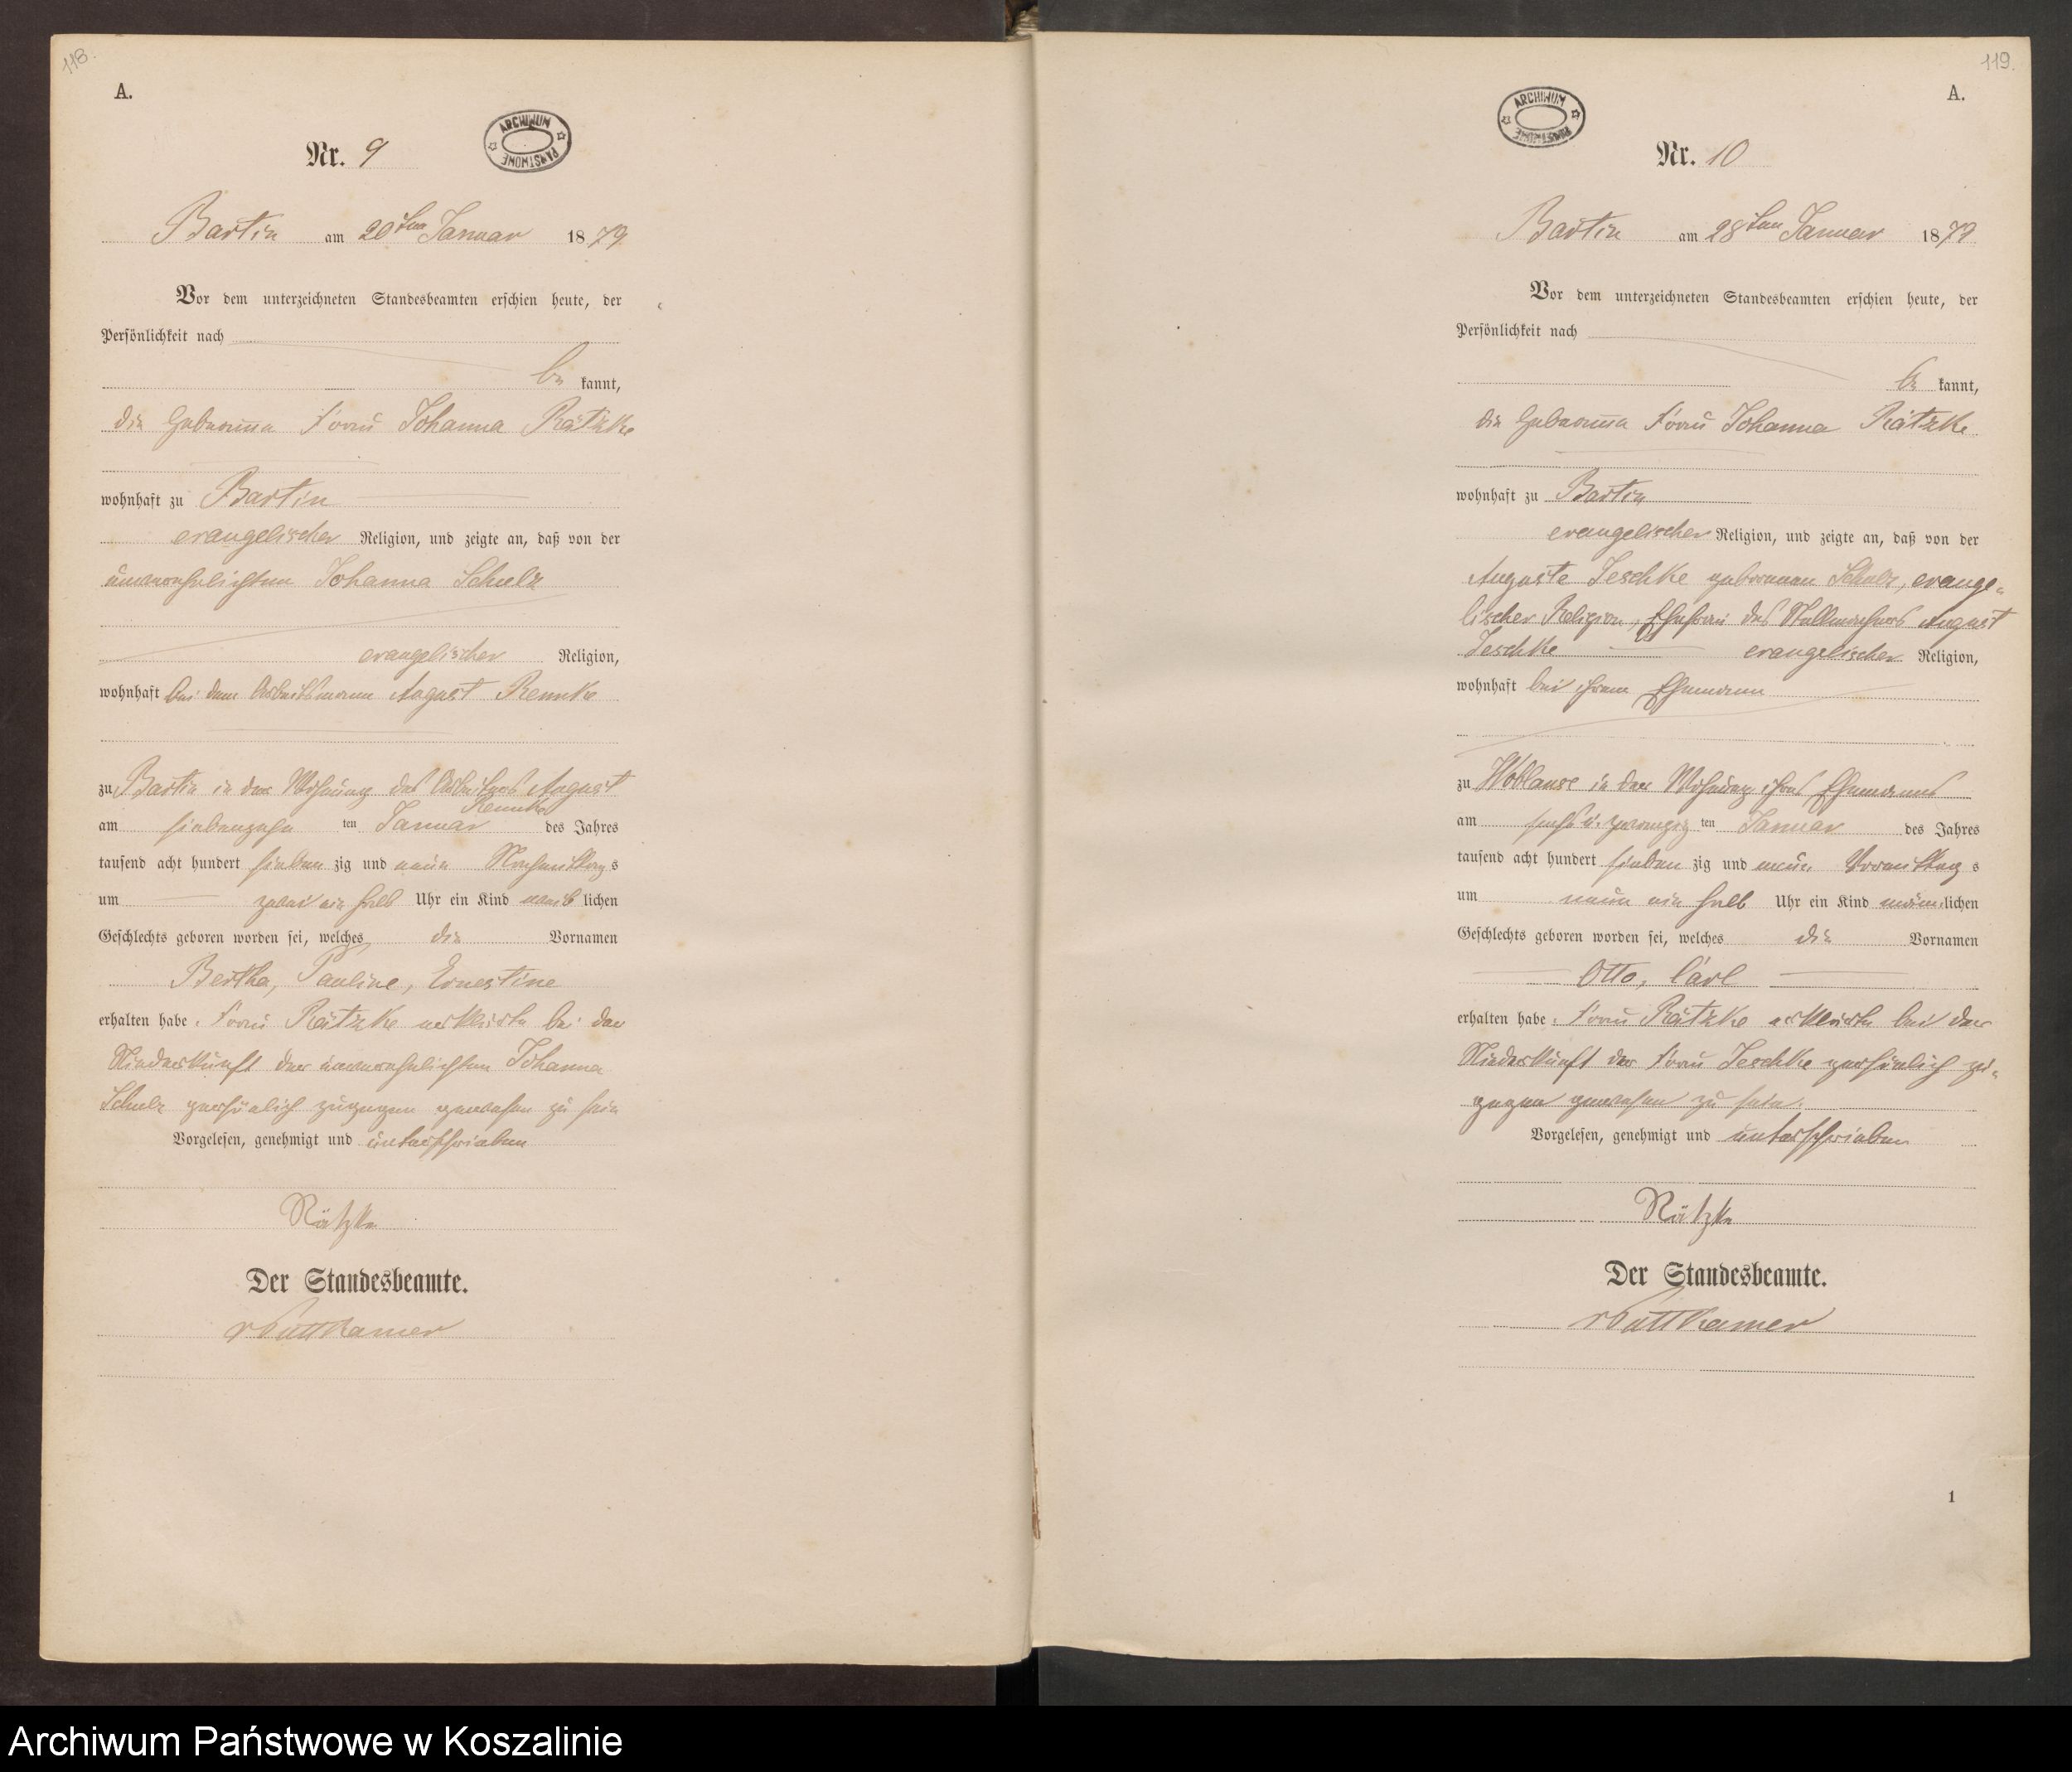 118.
A.
ARCHIWUM PAŃSTWOWE
Nr. 9
Bartin am 20ten Januar 1879
Vor dem unterzeichneten Standesbeamten erschien heute, der
Persönlichkeit nach
be kannt,
die Hebamme Frau Johanna Rätzke
wohnhaft zu Bartin
evangelischer Religion, und zeigte an, daß von der
unverehelichten Johanna Schulz
evangelischer Religion,
wohnhaft bei dem Arbeitsmann August Remke
zu Bartin in der Wohnung des Arbeiters August
Remke
am siebenzehn ten Januar des Jahres
tausend acht hundert sieben zig und neun Nachmittag s
um zwei ein halb Uhr ein Kind weib lichen
Geschlechts geboren worden sei, welches die Vornamen
Bertha, Pauline, Ernestine
erhalten habe. Frau Rätzke erklärte bei der
Niederkunft der unverehelichten Johanna
Schulz persönlich zugegen gewesen zu sein
Vorgelesen, genehmigt und unterschrieben
Rätzke
Der Standesbeamte.
vPuttkamer
119.
A.
ARCHIWUM PAŃSTWOWE
Nr. 10
Bartin am 28ten Januar 1879
Vor dem unterzeichneten Standesbeamten erschien heute, der
Persönlichkeit nach
be kannt,
die Hebamme Frau Johanna Rätzke
wohnhaft zu Bartin
evangelischer Religion, und zeigte an, daß von der
Auguste Jeschke geborenen Schulz, evange-
lischer Religion, Ehefrau des Stellmachers August
Jeschke evangelischer Religion,
wohnhaft bei ihrem Ehemann
zu Woblanse in der Wohnung ihres Ehemanns
am sechs u. zwanzig ten Januar des Jahres
tausend acht hundert sieben zig und neun Vormittag s
um neun ein halb Uhr ein Kind männ lichen
Geschlechts geboren worden sei, welches die Vornamen
Otto, Carl
erhalten habe. Frau Rätzke erklärte bei der
Niederkunft der Frau Jeschke persönlich zu-
gegen gewesen zu sein.
Vorgelesen, genehmigt und unterschrieben
Rätzke
Der Standesbeamte.
vPuttkamer
1
Archiwum Państwowe w Koszalinie